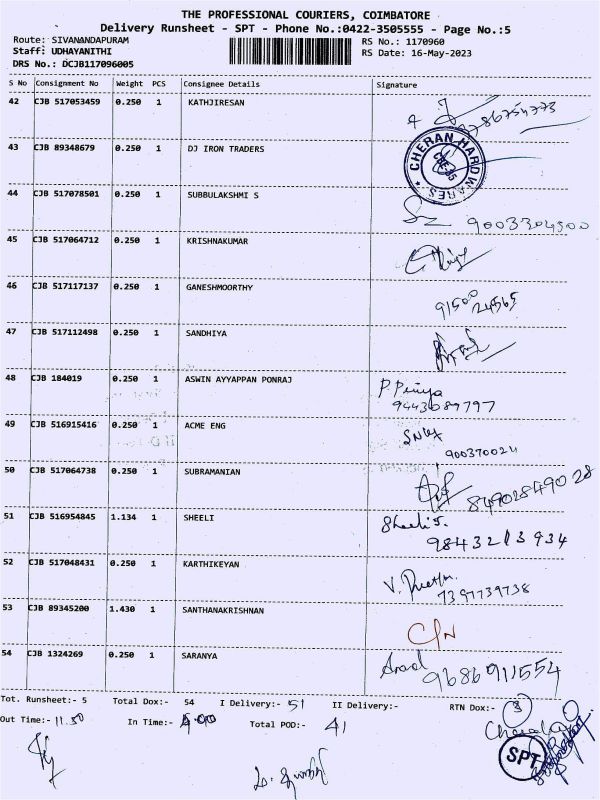 THE PROFESSIONAL COURIERS, COIMBATORE
Delivery Runsheet - SPT - Phone No.:0422-3505555 - Page No.:5
Route: SIVANANDAPURAM RS No.: 1170960
Staff: UDHAYANITHI RS Date: 16-May-2023
DRS No.: DCJB117096005
S No Consignment No Weight PCS Consignee Details Signature
42 CJB 517053459 0.250 1 KATHJIRESAN
43 CJB 89348679 0.250 1 DJ IRON TRADERS CHERAN HARDWARES
44 CJB 517078501 0.250 1 SUBBULAKSHMI S
9003304500
45 CJB 517064712 0.250 1 KRISHNAKUMAR
46 CJB 517117137 0.250 1 GANESHMOORTHY
91500 24565
47 CJB 517112498 0.250 1 SANDHIYA
48 CJB 184019 0.250 1 ASWIN AYYAPPAN PONRAJ P. Priya
9443089797
49 CJB 516915416 0.250 1 ACME ENG
900370024
50 CJB 517064738 0.250 1 SUBRAMANIAN
84902849028
51 CJB 516954845 1.134 1 SHEELI Sheeli S.
9843213934
52 CJB 517048431 0.250 1 KARTHIKEYAN
7397739738
53 CJB 89345200 1.430 1 SANTHANAKRISHNAN
C/N
54 CJB 1324269 0.250 1 SARANYA
9686911554
Tot. Runsheet:- 5 Total Dox:- 54 I Delivery:- 51 II Delivery:- RTN Dox:- 3
Out Time:- 11.50 In Time:- Total POD:- 41
SPT